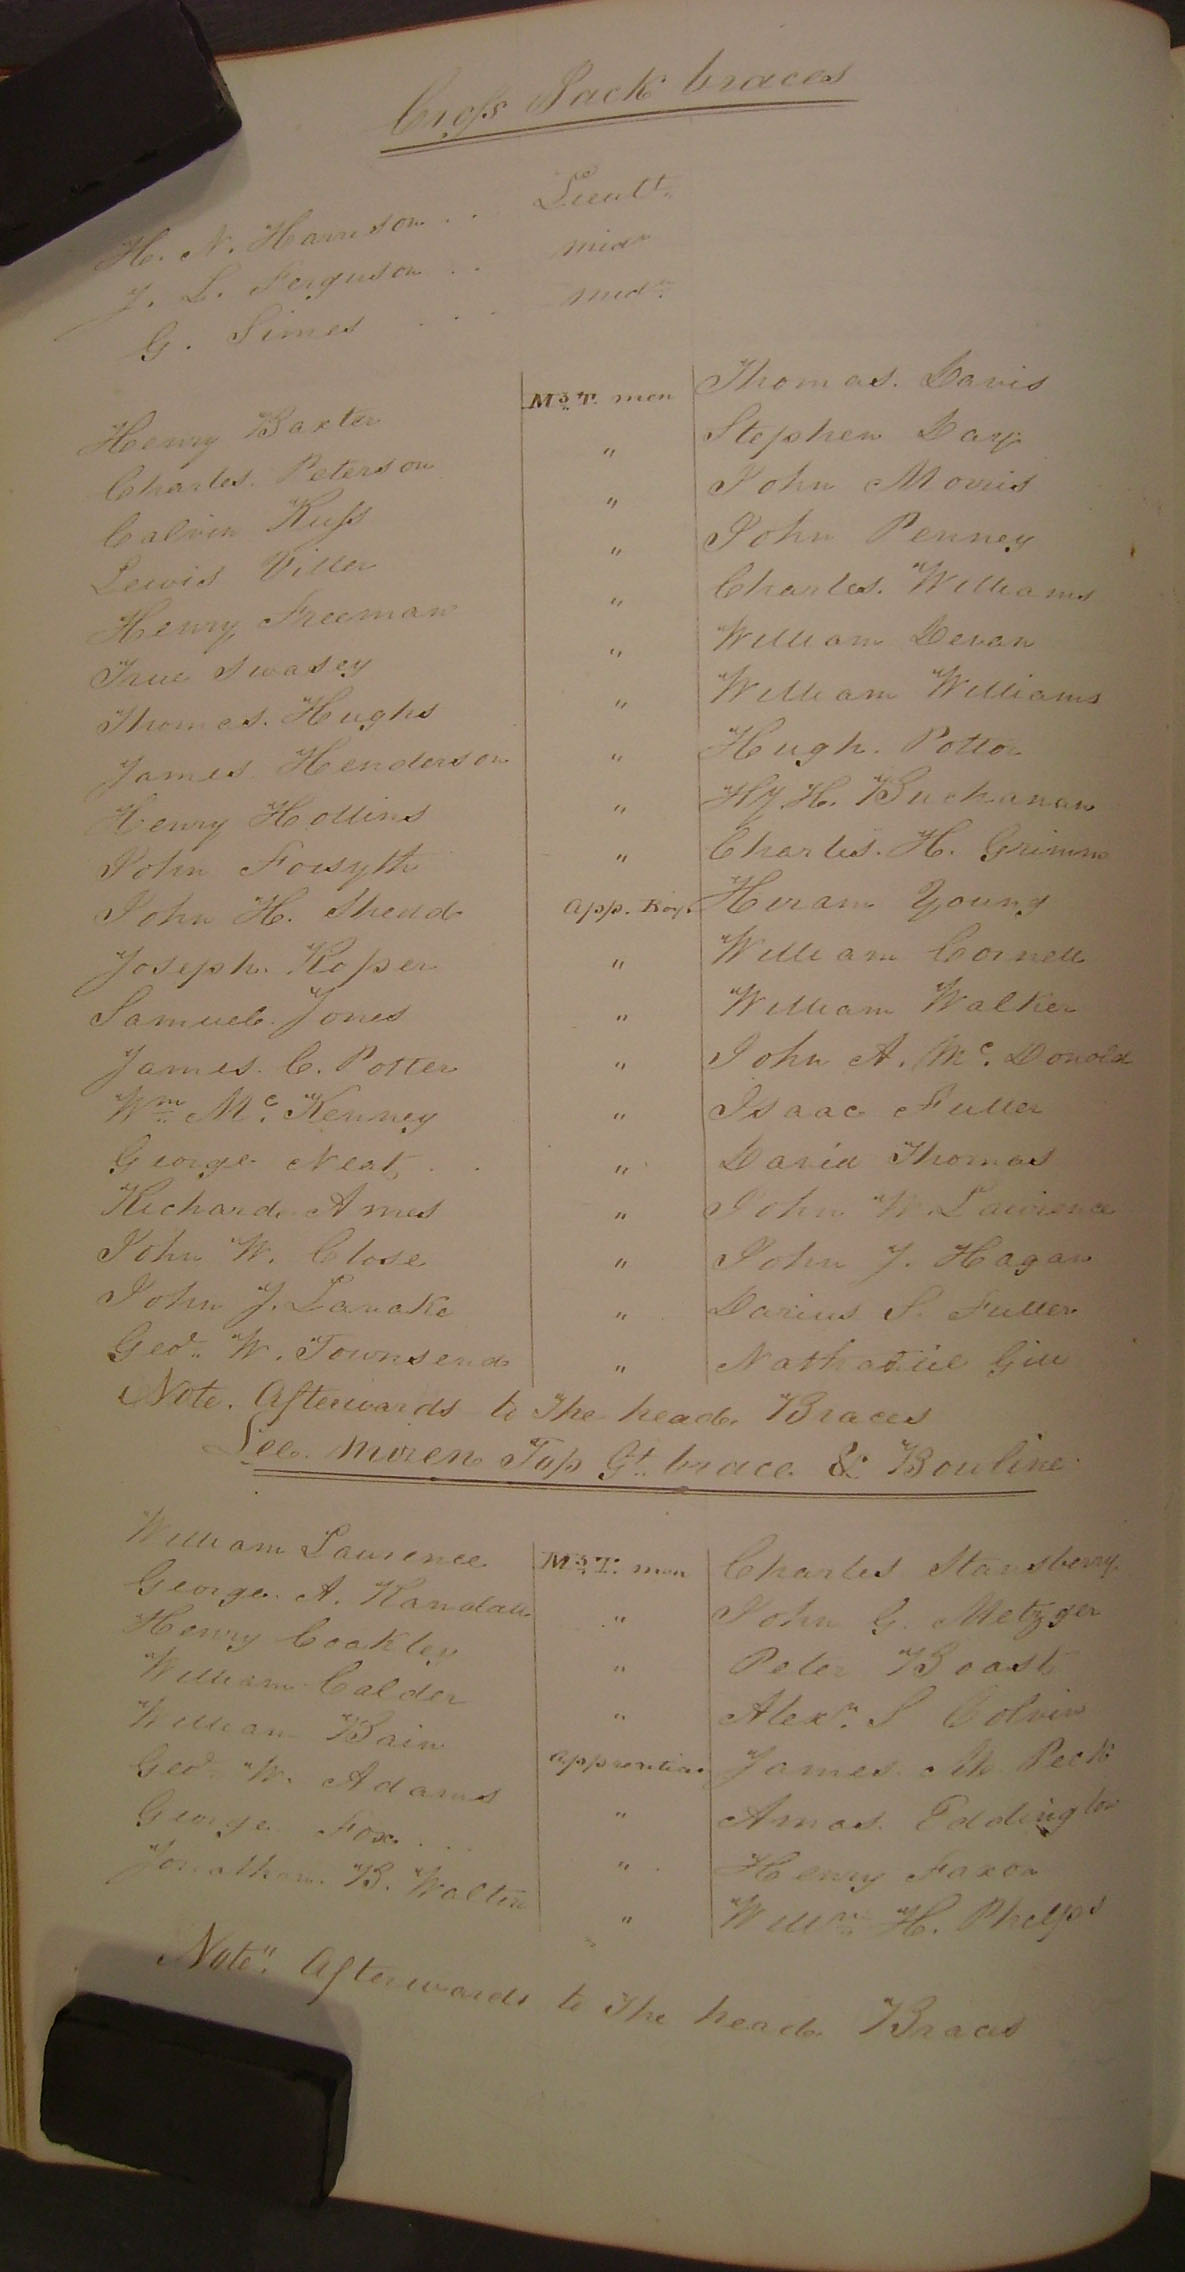 Cross Jack braces
H. N. Harrison . . Lieut.
J. L. Ferguson . . mid.
G. Simes . . . mid.
Henry Baxter Mz. T. men Thomas. Davis
Charles. Peterson " Stephen Day
Calvin Russ " John Morris
Lewis Viller " John Penney
Henry Freeman " Charles. Williams
True Swasey " William Devan
Thomas. Hughs " William Williams
James Henderson " Hugh. Potter
Henry Hollins " Hy. H. Buchanan
John Forsyth " Charles. H. Grimm
John H. Shedd App. Boys Hiram Young
Joseph. Roper " William Cornell
Samuel. Jones " William Walker
James. C. Potter " John A. Mc. Donold
Wm. Mc. Kenney " Isaac Fuller
George Neat . . " David Thomas
Richard Ames " John W. Lawrence
John W. Close " John J. Hagan
John J. " Darius S. Fuller
Geo. W. Townsend " Nathaniel Gill
Note. Afterwards to the head Braces
Lee. mizen Top Gt. brace & Bowline
William Lawrence Mz. T. men Charles Stansberry
George. A. Randall " John G. Metzger
Henry Coakley " Peter Boast
William Calder " Alexr. S Colvin
William Bain Apprentice James. M. Peck
Geo. W. Adams " Amos. Eddington
George Fox . . . " Henry Faxon
Jonathan. B. Walton " Willm. H. Phelps
Note" Afterwards to the head Braces